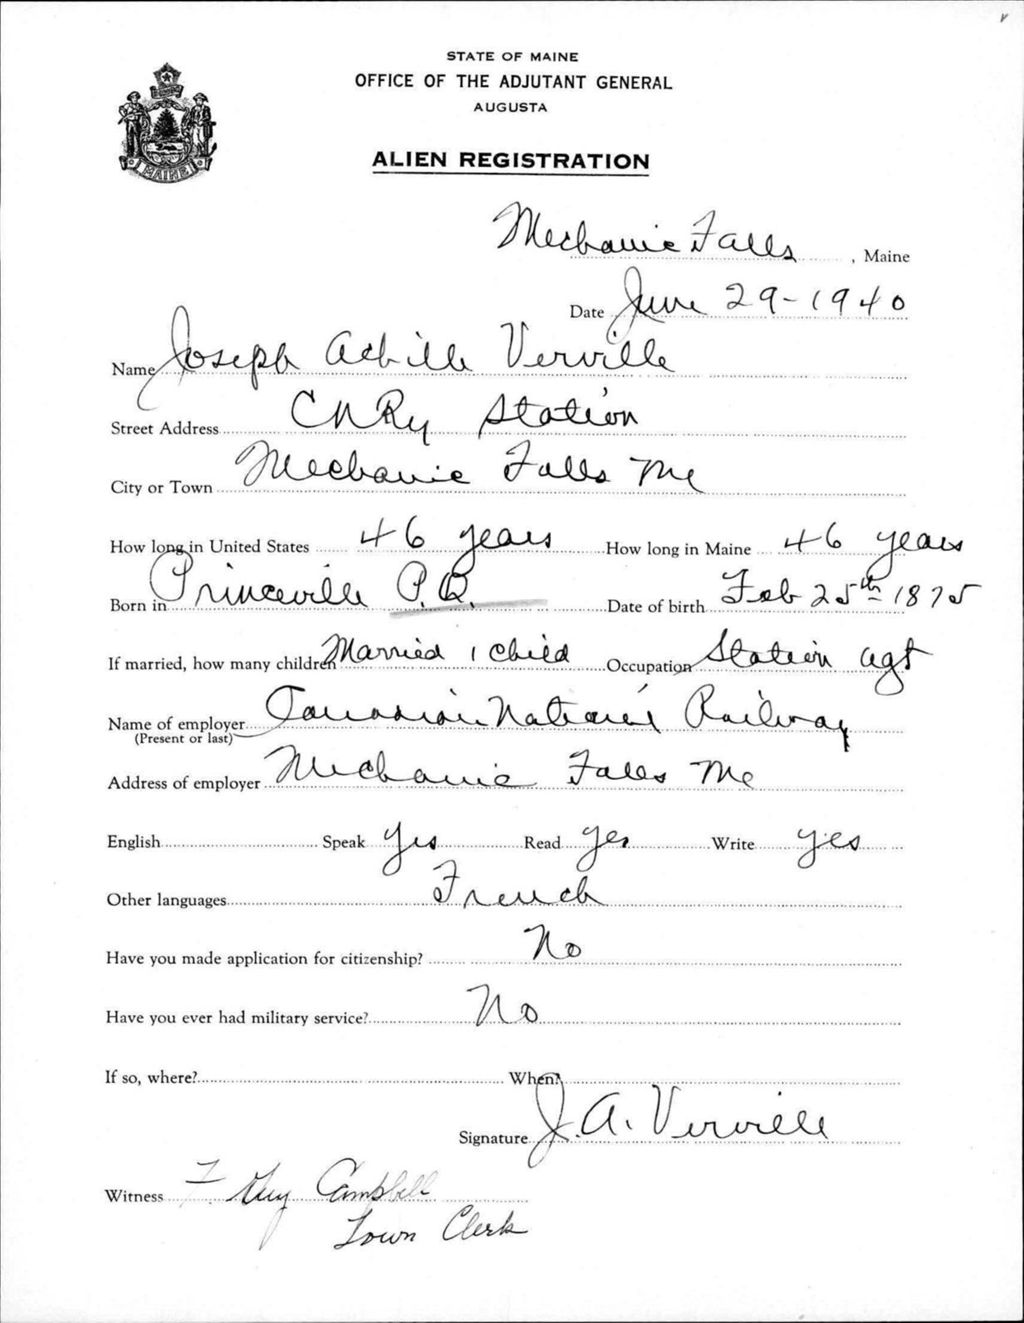 STATE OF MAINE
OFFICE OF THE ADJUTANT GENERAL
AUGUSTA
ALIEN REGISTRATION
MAINE
Mechanic Falls, Maine
Date June 29-1940
Name Joseph Achille Verville
Street Address CNRy Station
City or Town Mechanic Falls Me
How long in United States 46 years How long in Maine 46 years
Born in Princeville P.Q. Date of birth Feb 25th 1875
If married, how many children Married 1 child Occupation Station agt
Name of employer Canadian National Railway
(Present or last)
Address of employer Mechanic Falls Me
English Speak Yes Read yes Write yes
Other languages French
Have you made application for citizenship? No
Have you ever had military service? No
If so, where? When?
Signature J. A. Verville
Witness F. Guy Campbell
Town Clerk